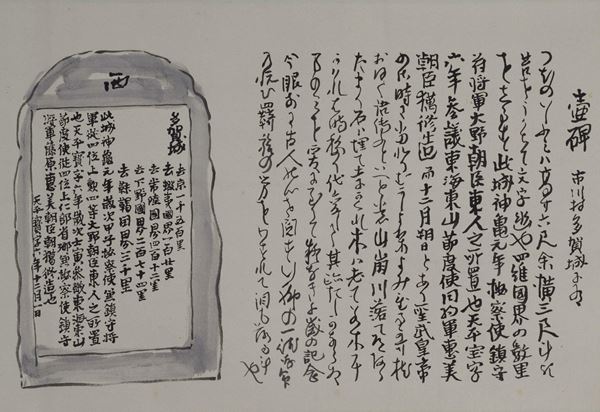 壺碑 市川村多賀城に有
つぼの石ふみは高サ六尺余横三尺斗か
苔を穿て文字幽也四維国界の数里
をしるす此城神亀元年按察使鎮守
府将軍大野朝臣東人之所置也天平宝字
六年参議東海東山節度使同将軍恵美
朝臣獦修造而十二月朔日と有聖武皇帝
の御時に当れりむかしよりよみ置る哥枕
おほく語伝ふといへとも山崩川落て道あら
たまり石は埋て土にかくれ木は老て若木に
かはれは時移り代変して其跡たしかならぬ
事のみを爰に至りて疑なき千歳の記念
今眼前に古人の心を閲す行脚の一徳存命
の悦ひ羇旅の労をわすれて泪も落るはかり也
西
多賀城
去京一千五百里
去蝦夷國界一百廿里
去常陸國界四百十二里
去下野國界二百七十四里
去靺鞨國界三千里
此城神亀元年歳次甲子按察使兼鎮守将
軍従四位上勲四等大野朝臣東人之所置
也天平寳字六年歳次壬寅参議東海東山
節度使従四位上仁部省卿兼按察使鎮守
将軍藤原恵美朝臣朝獦修造也
天平寳字六年十二月一日